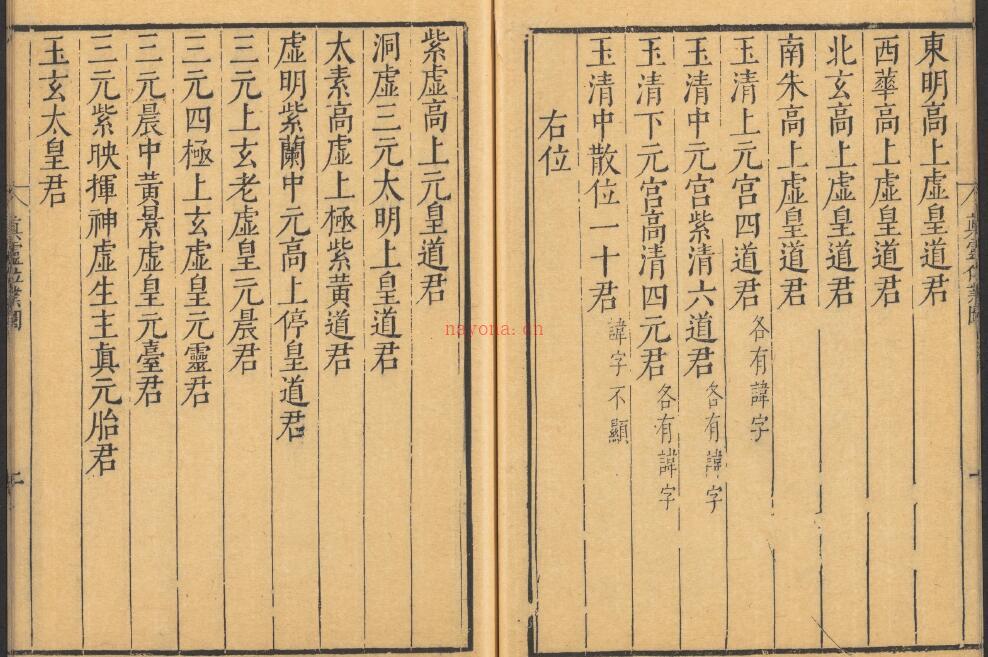 東明高上虛皇道君
西華高上虛皇道君
北玄高上虛皇道君
南朱高上虛皇道君
玉清上元宮四道君各有諱字
玉清中元宮紫清六道君各有諱字
玉清下元宮高清四元君各有諱字
玉清中散位一十君諱字不顯
右位
紫虛高上元皇道君
洞虛三元太明上皇道君
太素高虛上極紫黃道君
虛明紫蘭中元高上停皇道君
三元上玄老虛皇元晨君
三元四極上玄虛皇元靈君
三元晨中黃景虛皇元臺君
三元紫映揮神虛生主眞元胎君
玉玄太皇君
nayona.cn